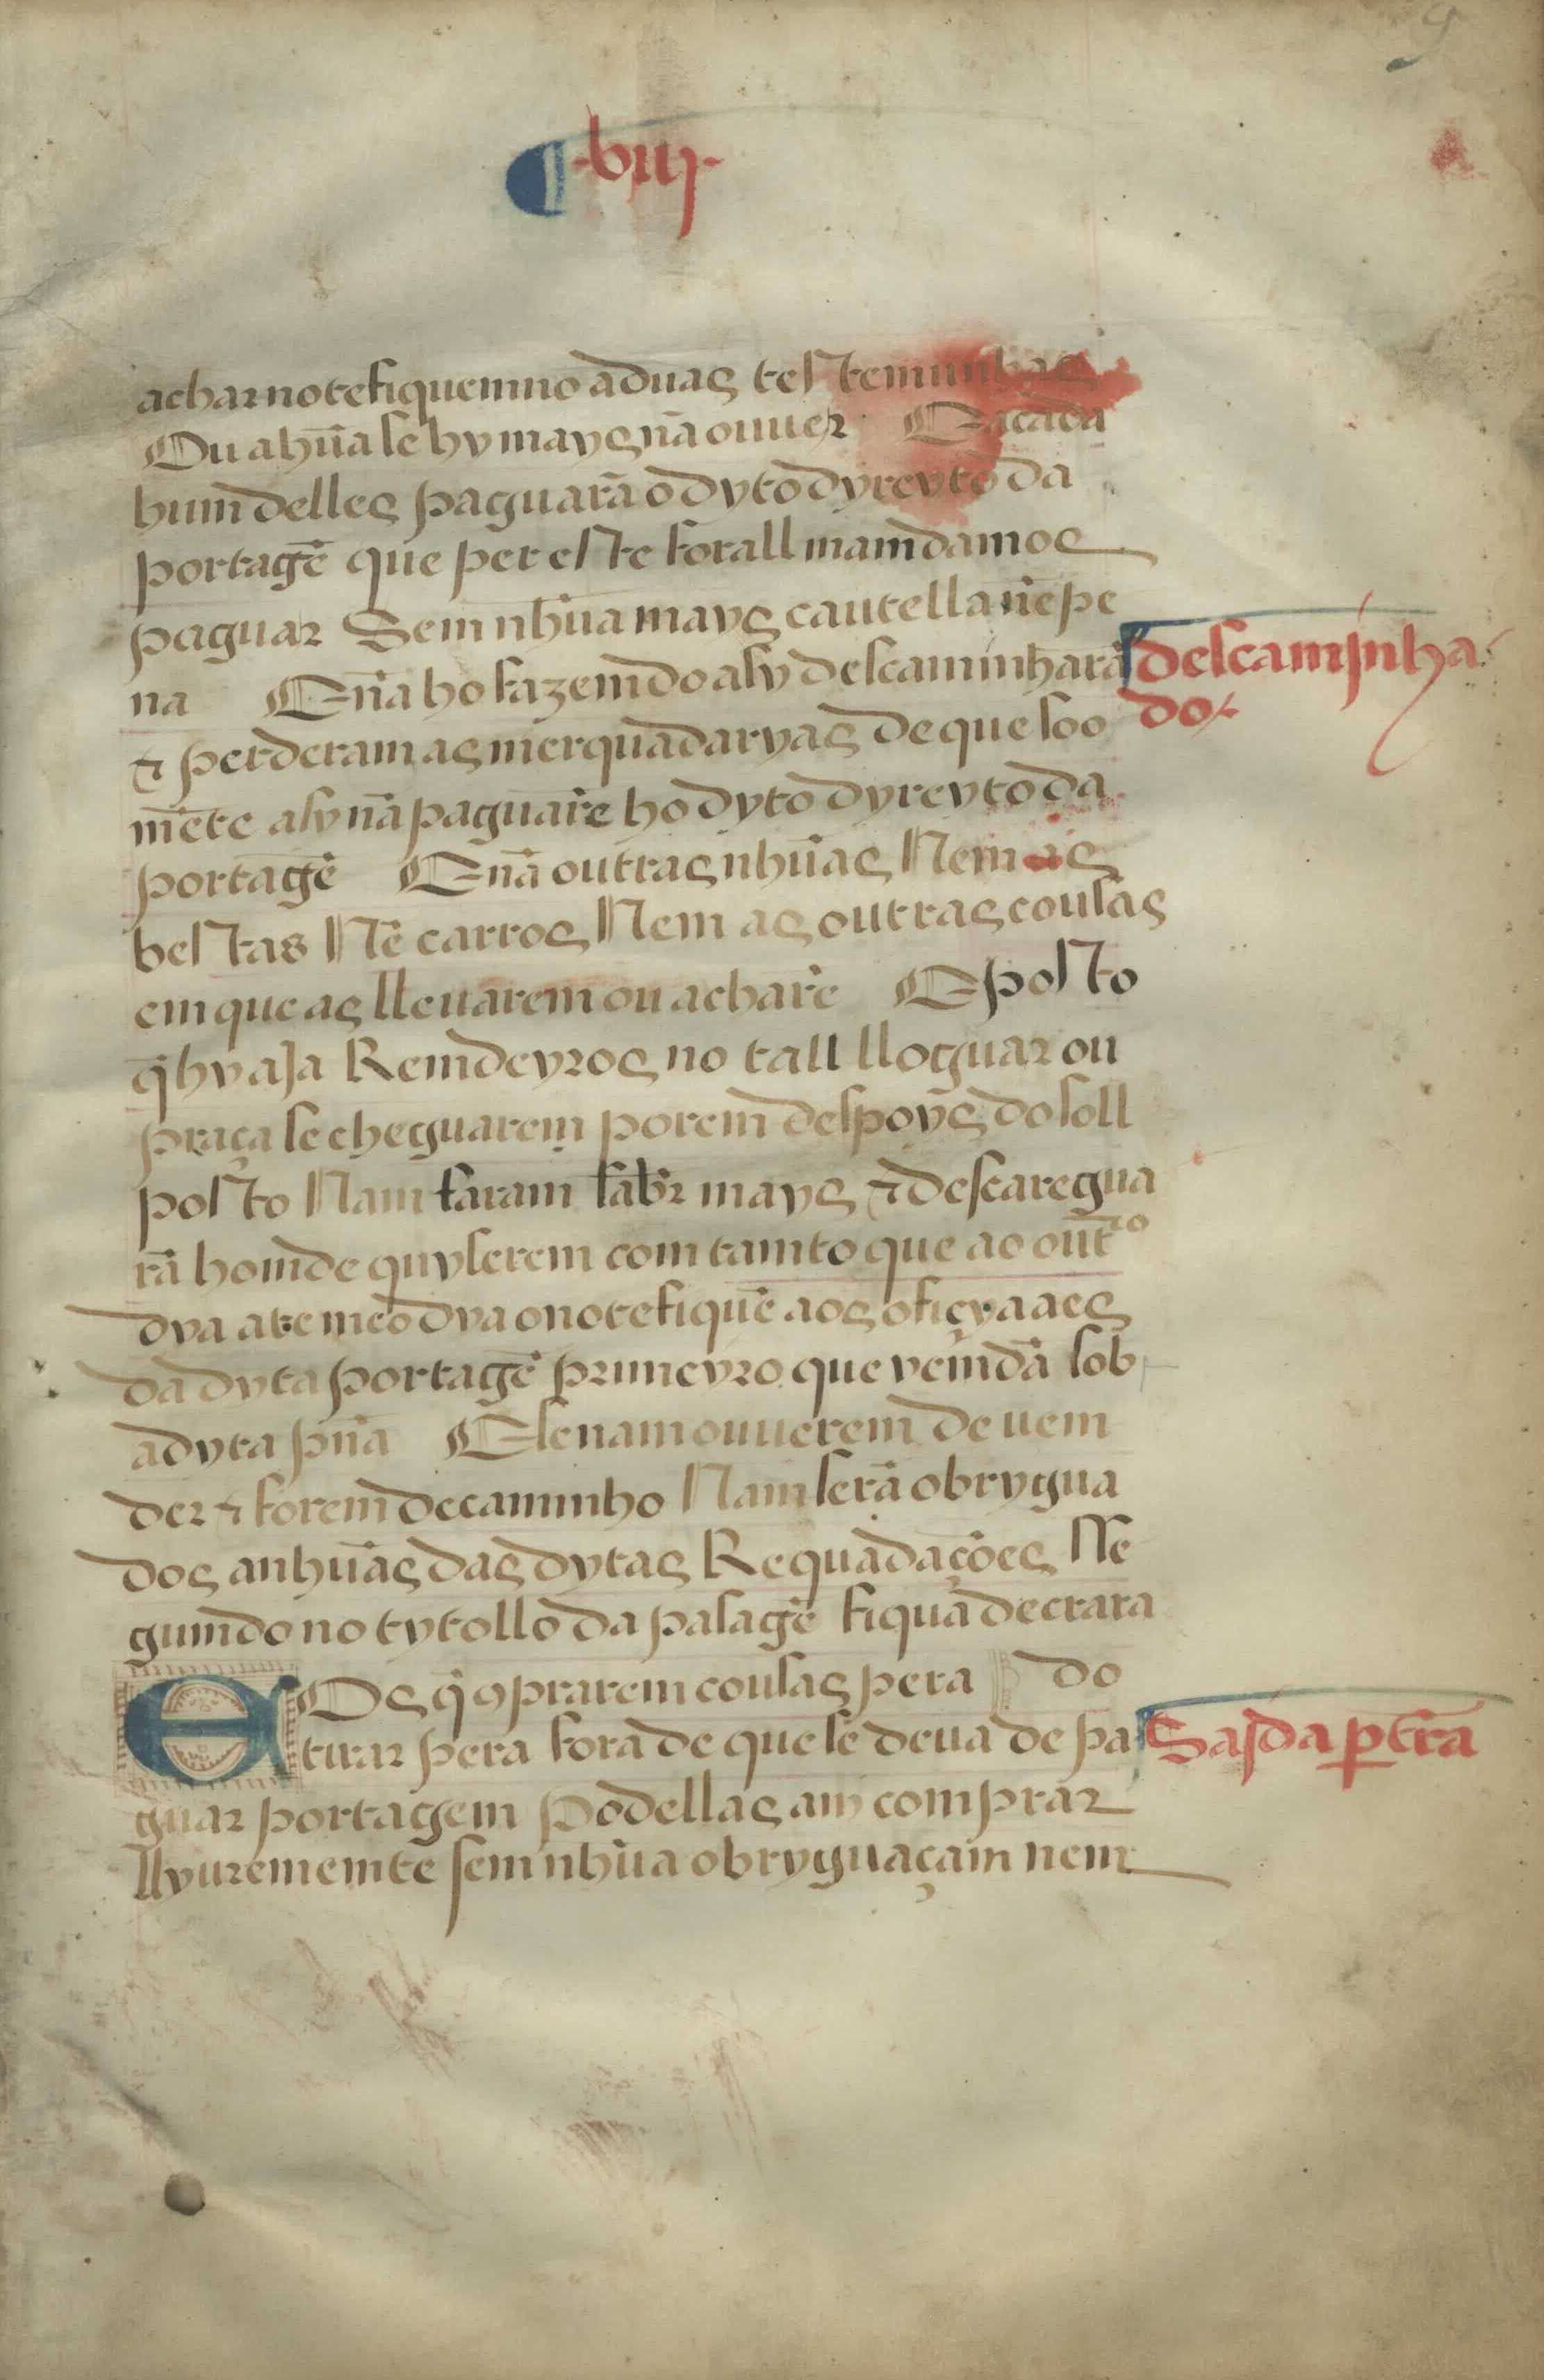 9
¶ ·biij·
achar notefiquemno a duas testemunhas
Ou a hũa se hy mays nã ouuer E a cada
hum delles paguarã o dyto dyreyto da
portagẽ que per este forall mamdamos
paguar Sem nhũa mays cautella nẽ pe
na E nã ho fazemdo asy descaminharã
descaminha
do
⁊ perderam as merquadaryas de que soo
mẽte asy nã paguarẽ ho dyto dyreyto da
portagẽ E nã outras nhũas Nem as
bestas Nẽ carros Nem as outras cousas
em que as lleuarem ou acharẽ E posto
q̃ hy aja Remdeyros no tall lloguar ou
praça se cheguarem porem despoys do soll
posto Nam faram sabr mays ⁊ descaregua
rã homde quyserem com tamto que ao outro
dya ate meo dya o notefiquẽ aos oficyaaes
da dyta portagẽ prymeyro que vemdã sob
a dyta pña E se nam ouuerem de uem
der ⁊ forem de caminho Nam serã obrygua
dos a nhũas das dytas Requadações Se
gumdo no tytollo da pasagẽ fiqua decrara
do
E Os q̃ 9prarem cousas pera
tirar pera fora de que se deua de pa
Sajda p tr̃a
guar portagem podellas am comprar
llyurememte sem nhũa obryguaçam nem